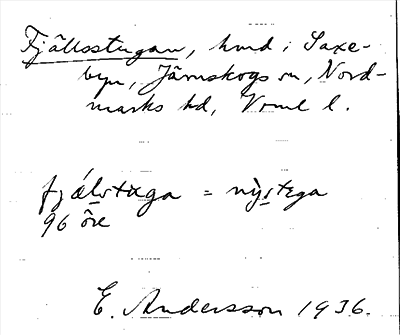 Fjällsstugan, hmd i Saxe-
byn, Järnskogs sn, Nord-
marks hd, Vrml l.
fjälstuga = nystuga
96 öre
E. Andersson 1936.